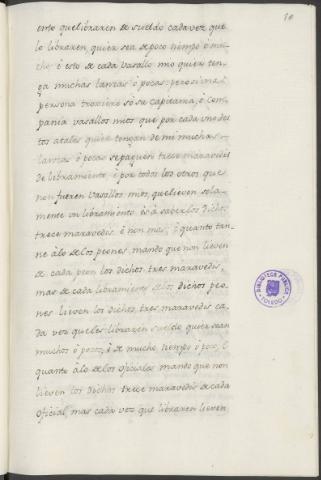 10
ento que libraren de sueldo cada vez que
lo libraren, quier sea de poco tiempo ó mu-
cho é esto de cada vasallo mio quier ten-
ga muchas lanzas ó pocas: pero si una
persona troxiere só su capitania, é Com-
pania vasallos mios que por cada uno des
tos atales quier tengan de mi muchas
lanzas ó pocas se paguen trece maravedis
de libramiento é por todos los otros que
non fueren vasallos mios, que lieven sola-
mente un libramiento es á saber los dichos
trece maravedis é non mas; é quanto tan-
ne á lo de los peones, mando que non lieven
de cada peon los dichos tres maravedis,
mas de cada libramiento de los dichos peo-
nes lieven los dichos tres maravedis ca-
da vez que les libraren sueldo quier sean
muchos ó pocos, é de mucho tiempo ó poco, é
quanto á lo de los oficiales mando que non
lieven los dichos trece maravedis de cada
oficial, mas cada vez que libraren lieven
BIBLIOTECA PUBLICA
TOLEDO